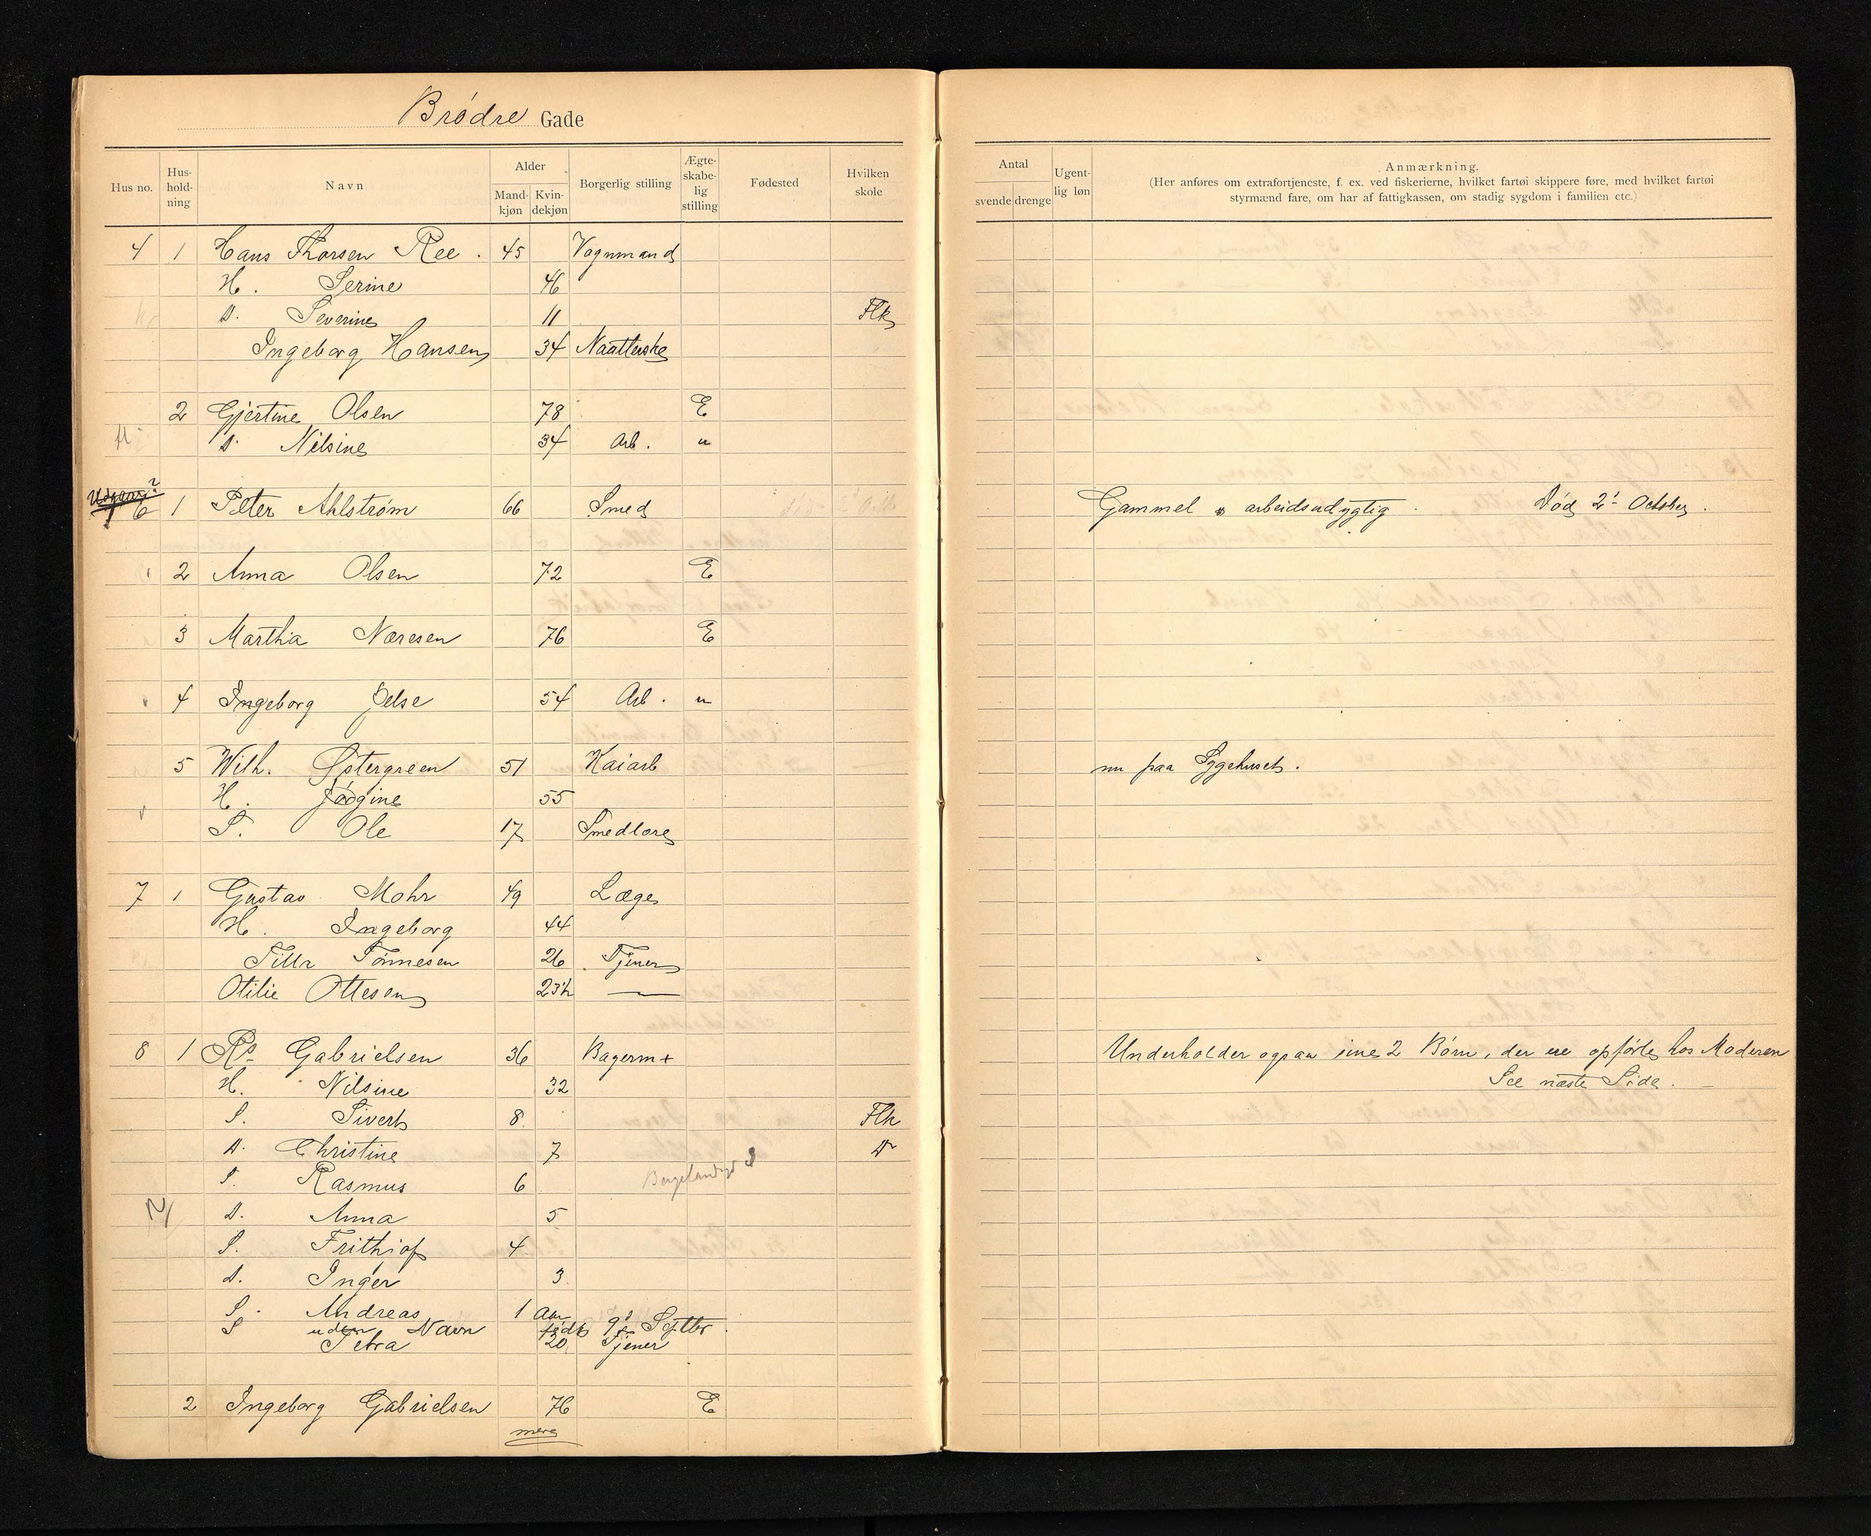 Brødre Gade
Hus no. Hus-hold-ning Navn Alder Mand-kjøn Kvin-dekjøn Borgerlig stilling Ægte-skabe-lig stilling Fødested Hvilken skole
Antal svende drenge Ugent-lig løn Anmærkning.
(Her anføres om extrafortjeneste, f. ex. ved fiskerierne, hvilket fartøi skippere føre, med hvilket fartøi
styrmænd fare, om har af fattigkassen, om stadig sygdom i familien etc.)
4 1 Hans Thorsen Ree. 45 Vognmand
H. Serine 46
D. Severine 11 Flk
Ingeborg Hansen 34 Naatterske
2 Gjertine Olsen 78 E
D. Nilsine 34 Arb. u
6 1 Peter Ahlstrøm 66 Smed Gammel arbeidsudygtig. Død 2' October.
2 Anna Olsen 72 E
3 Martha Næresen 76 E
4 Ingeborg Jelse 54 Arb. u
5 Wilh. Østergreen 51 Kaiarb nu paa Sygehuset.
H. Jørgine 55
S. Ole 17 Smedlære
7 1 Gustav Mohr 49 Læge
H. Ingeborg 44
Tilla Tønnesen 26 Tjener
Otilie Ottesen 23½ —
8 1 Rs Gabrielsen 36 Bagerm+ Underholder ogsaa sine 2 Børn, der ere opførte hos Moderen
H. Nilsine 32 See næste Side.
S. Sivert 8 Flk
D. Christine 7 D
S. Rasmus 6 Bergelandsgd 8
D. Anna 5
S. Frithjof 4
D. Inger 3
S. Andreas 1 Aar
S uden Navn født 9d Septbr.
Petra 20 Tjener
2 Ingeborg Gabrielsen 76 E
mere